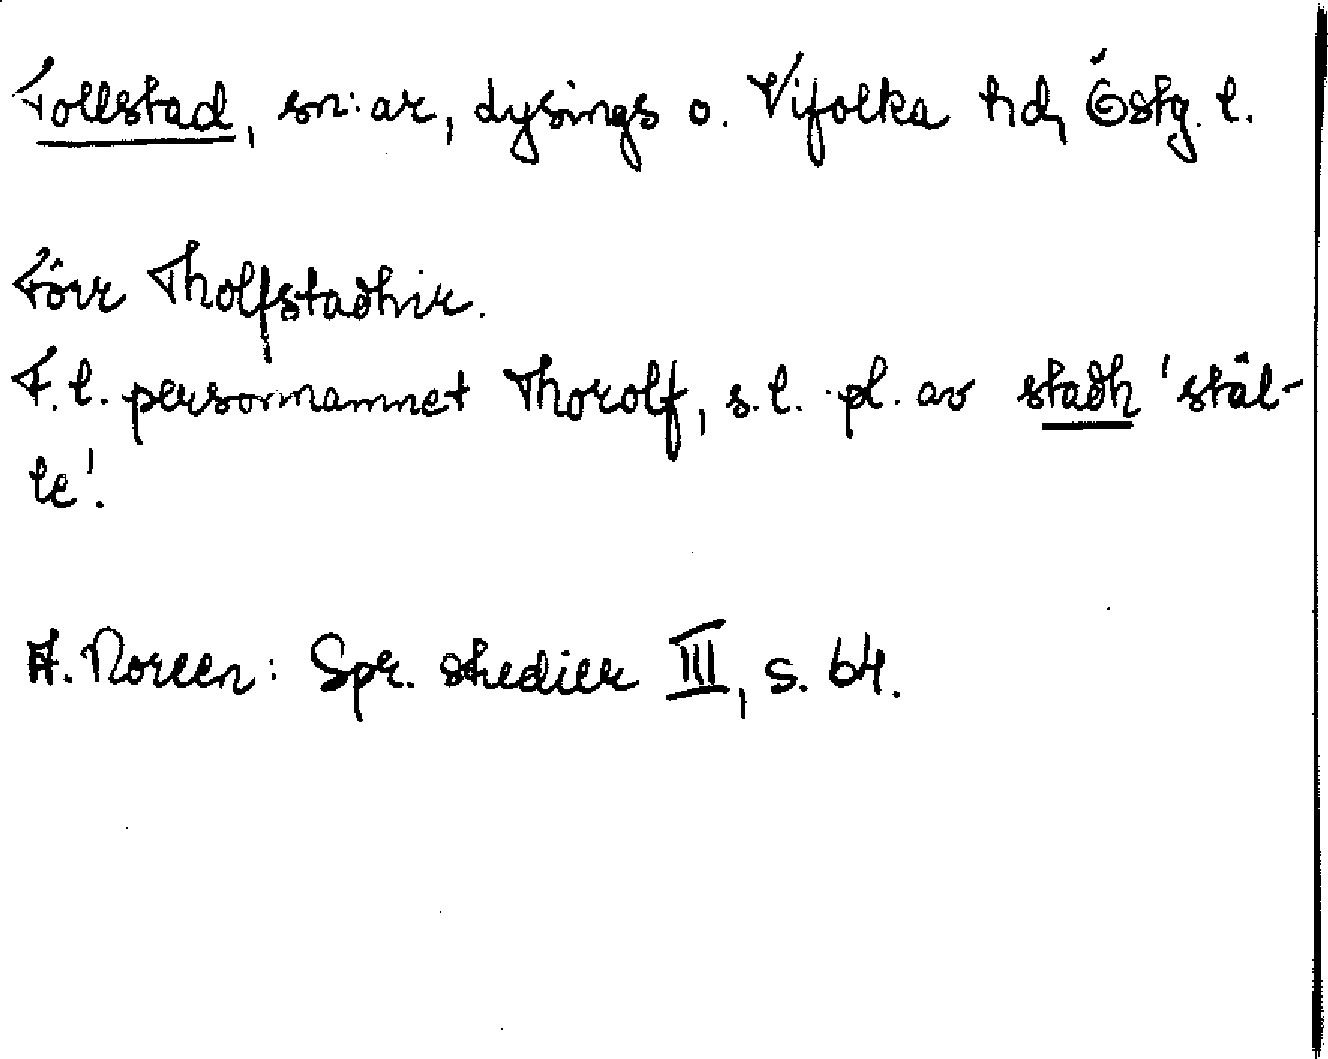 Tollstad, sn:ar, Lysings o. Vifolka hd, Östg. l.
Förr Tholfstadhir.
F. l. personnamnet Thorolf, s. l. pl. av stadh 'stäl-
le'.
A. Noreen: Spr. studier III, s. 64.